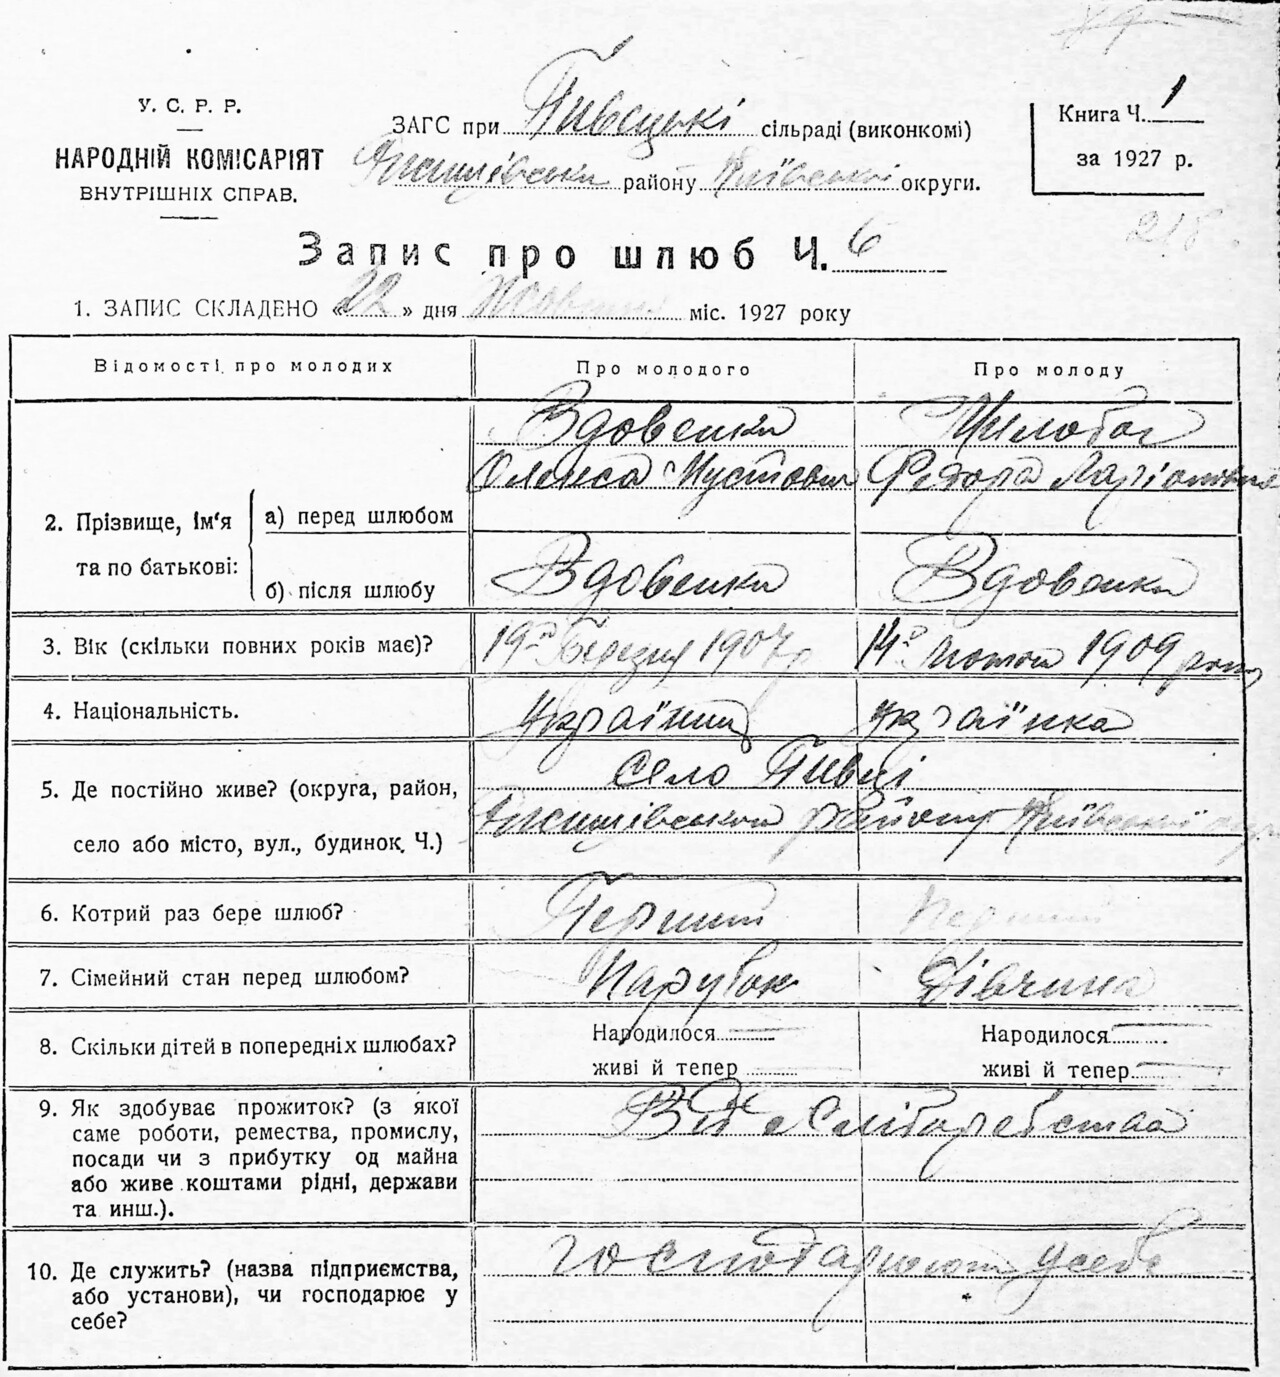 У. С. Р. Р.
НАРОДНІЙ КОМІСАРІЯТ
ВНУТРІШНІХ СПРАВ.
ЗАГС при Пивецькі сільраді (виконкомі)
району Київські округи.
Книга Ч. 1
за 1927 р.
218
Запис про шлюб Ч. 6
1. ЗАПИС СКЛАДЕНО «22» дня Жовтня міс. 1927 року
Відомості про молодих Про молодого Про молоду
2. Прізвище, ім'я та по батькові:
а) перед шлюбом
Вдовенко
Олекса Мустович
Федора
б) після шлюбу
Вдовенко Вдовенко
3. Вік (скільки повних років має)? 19го Березня 1907 р 14го Лютого 1909 року
4. Національність. Українець Українка
5. Де постійно живе? (округа, район, село або місто, вул., будинок, Ч.)
село Пивці
району Київські
6. Котрий раз бере шлюб? Перший Перший
7. Сімейний стан перед шлюбом? Парубок Дівчина
8. Скільки дітей в попередніх шлюбах?
Народилося Народилося
живі й тепер живі й тепер
9. Як здобуває прожиток? (з якої
саме роботи, ремества, промислу,
посади чи з прибутку од майна
або живе коштами рідні, держави
та инш.).
Від хліборобства
10. Де служить? (назва підприємства,
або установи), чи господарює у
себе?
господарюют у себе